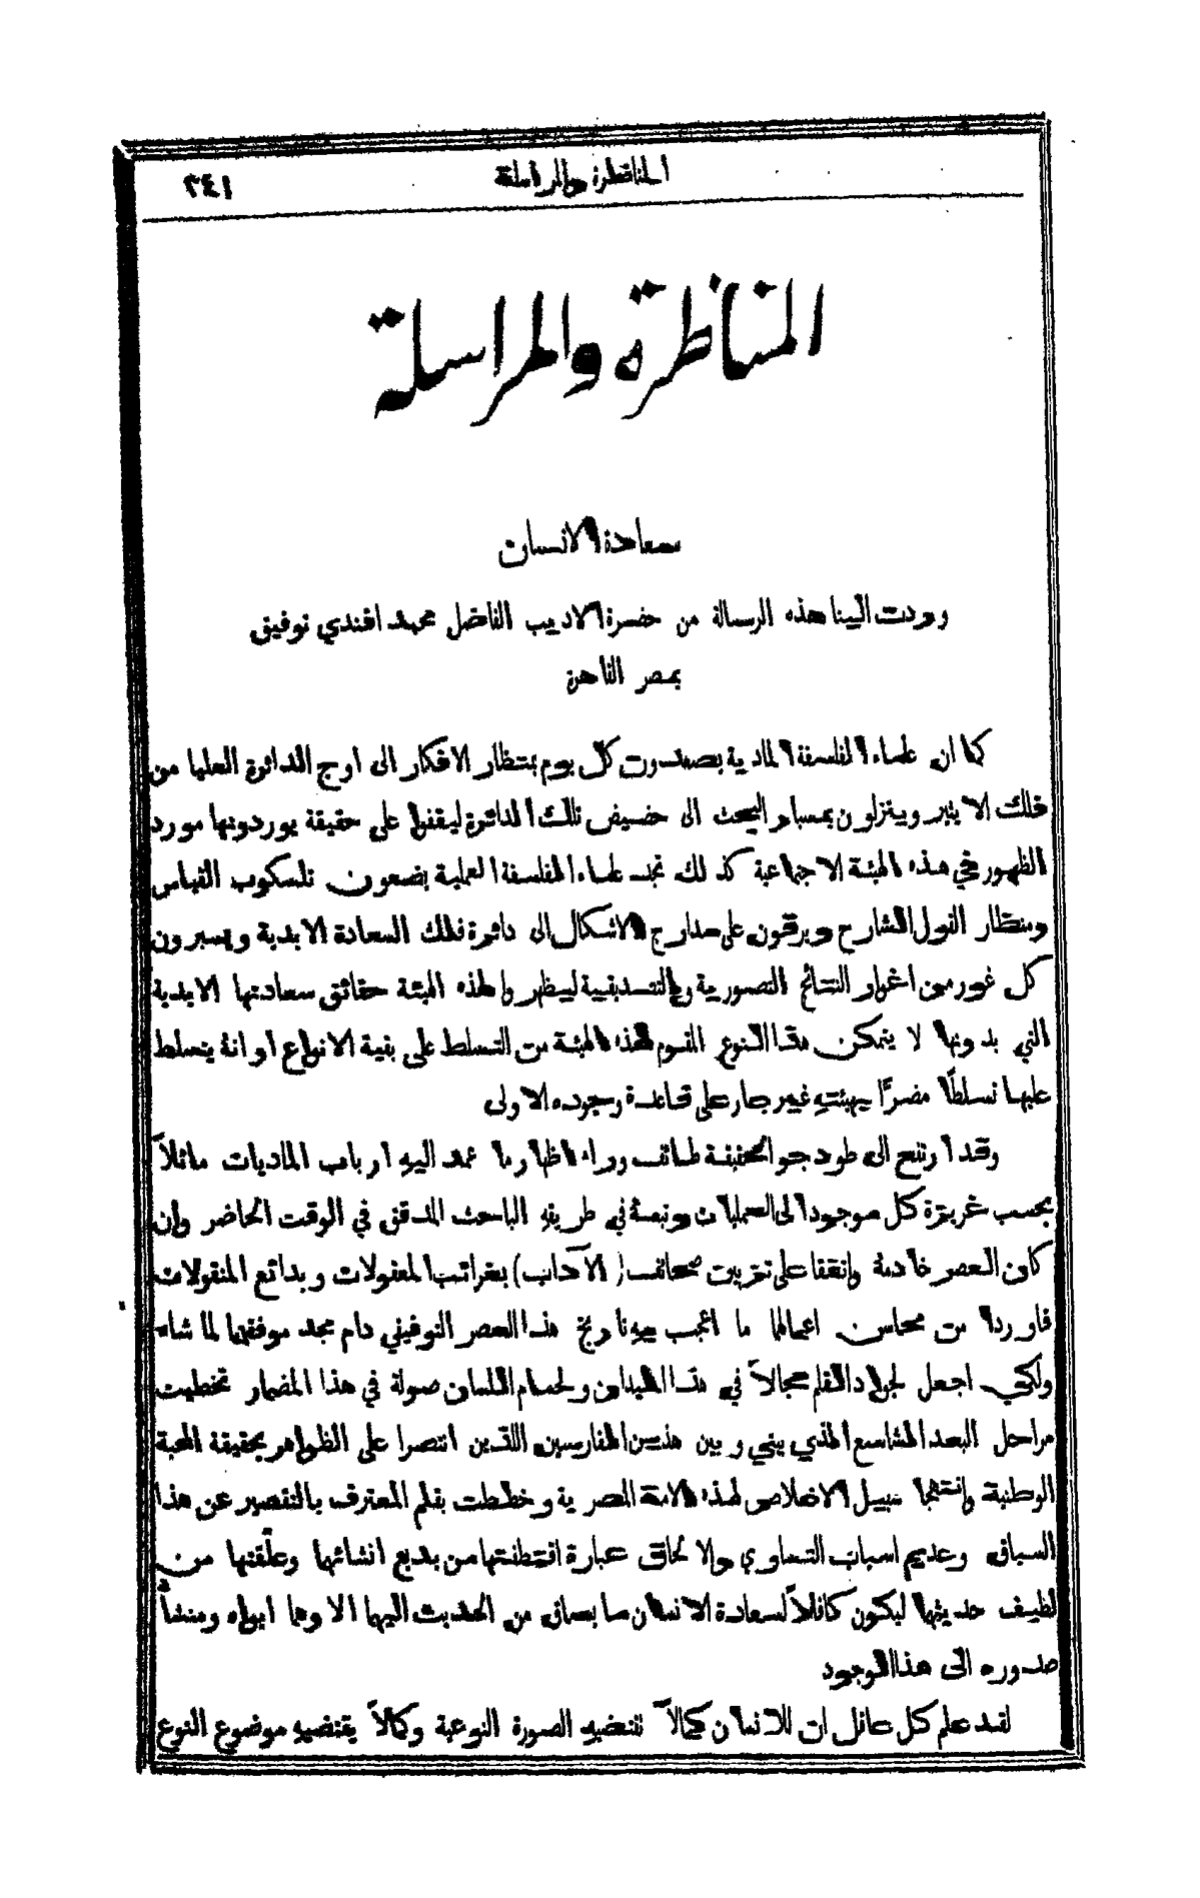 المناظرة والمراسلة ٣٤١
المناظرة والمراسلة
سعادة الانسان
وردت الينا هذه الرسالة من حضرة الاديب الفاضل محمد افندي توفيق
بمصر القاهرة
كما ان علماء الفلسفة المادية يصعدون كل يوم بمنظار الافكار الى اوج الدائرة العليا من
فلك الاثير وينزلون بمسبار البحث الى حضيض تلك الدائرة ليقفوا على حقيقة يوردونها مورد
الظهور في هذه الهيئة الاجتماعية كذلك نجد علماء الفلسفة العملية يضعون تلسكوب القياس
ومنظار القول الشارح ويرقون على مدارج الاشكال الى دائرة فلك السعادة الابدية ويسبرون
كل غور من اغوار النتائج التصورية والتصديقية ليظهروا لهذه الهيئة حقائق سعادتها الابدية
التي بدونها لا يتمكن هذا النوع المقوم لهذه الهيئة من التسلط على بقية الانواع او انهُ يتسلط
عليها تسلطًا مضرًّا بهيئتهِ غير جار على قاعدة وجوده الاولى
وقد ارتفع الى طود جو الحقيقة طائف وراء اظهار ما عمد اليهِ ارباب الماديات مائلاً
بحسب غريزة كل موجود الى العمليات ونبعهُ في طريقهِ الباحث المدقق في الوقت الحاضر وإن
كان العصر خادمهُ واتفقا على تزيين صحائف (الآداب) بغرائب المعقولات وبدائع المنقولات
فاوردا من محاسن اعمالها ما اعجب بهِ تاريخ هذا العصر التوفيقي دام مجد موفقهما لما شاء
ولكي اجعل لجواد القلم مجالاً في هذا الميدان ولحسام اللسان صولة في هذا المضمار تخطيت
مراحل البعد الشاسع الذي بيني وبين هذين الفارسين اللذين انتصرا على الظواهر بحقيقة المحبة
الوطنية وانتهجا سبيل الاخلاص لهذه الامة المصرية وخططت بقلم المعترف بالتقصير عن هذا
السباق وعديم اسباب التساوي والالحاق عبارة اقتطفتها من بديع انشائها وعلّقتها من
لطيف حديثها ليكون كافلاً لسعادة الانسان ما يساق من الحديث اليها الا وهما ابواه ومنشأ
صدوره الى هذا الوجود
لقد علم كل عاقل ان للانسان كمالاً تقتضيهِ الصورة النوعية وكمالاً يقتضيهِ موضوع النوع